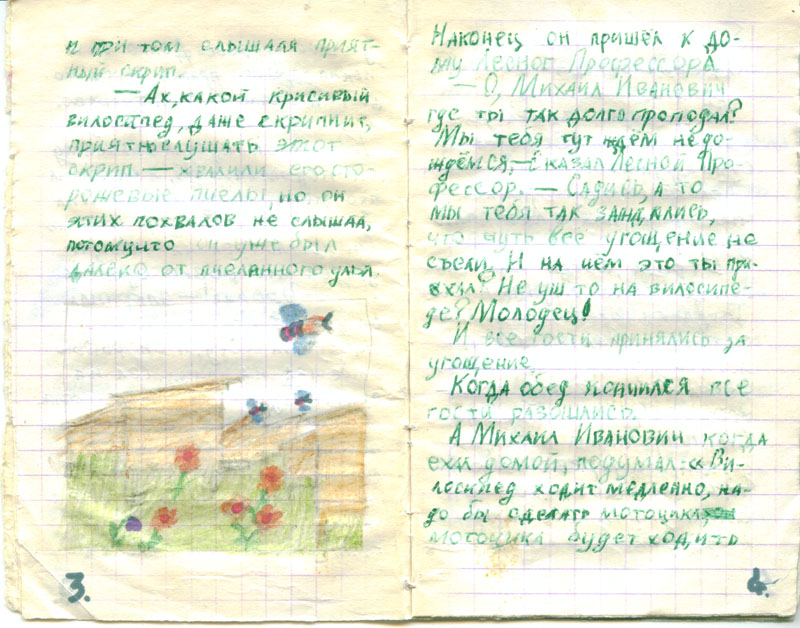 и при том слышала прият-
ный скрип.
— Ах, какой красивый
вилосипед, даже скрипит,
приятно слушать этот
скрип. — хвалили его сто-
рожевые пчелы, но он
этих похвалов не слышал,
потомучто он уже был
далеко от пчелинного улья.
3.
Наконец он пришёл к до-
му Лесного Профессора.
— О, Михаил Иванович
где ты так долго проподал?
Мы тебя тут ждём не до-
ждёмся, — сказал Лесной Про-
фессор. — Садись, а то
мы тебя так заждались,
что чуть все угощение не
съели. И на чём это ты при-
ехал? Не уш то на вилосипе-
де? Молодец!
И все гости принялись за
угощение.
Когда обед кончился все
гости разошлись.
А Михаил Иванович когда
ехал домой, подумал: «Ви-
лосипед ходит медленно, на-
до бы сделать мотоцикл,
мотоцикл будет ходить
4.